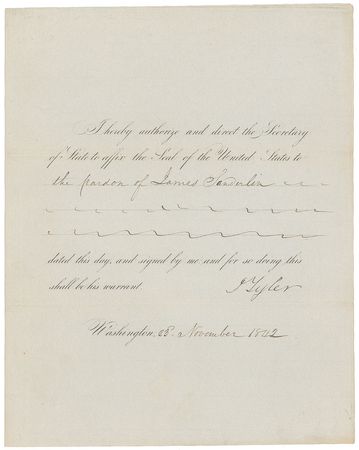 I hereby authorize and direct the Secretary
of State to affix the Seal of the United States to
the pardon of James Sanderlin
dated this day, and signed by me and for so doing this
shall be his warrant.
J Tyler
Washington, November 1842